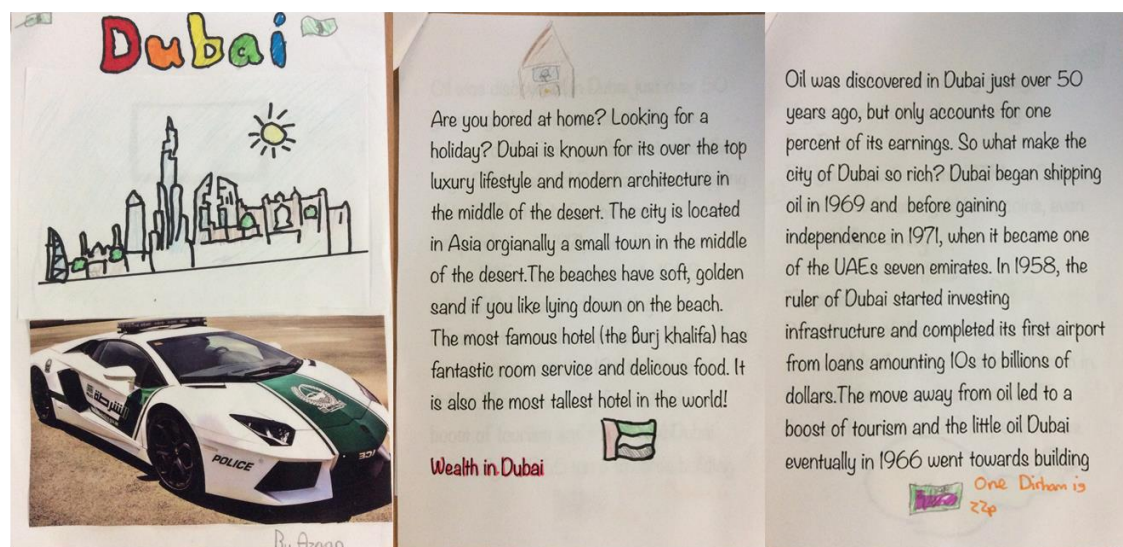 Dubai
الشرطة
POLICE
By Azaan
Are you bored at home? Looking for a
holiday? Dubai is known for its over the top
luxury lifestyle and modern architecture in
the middle of the desert. The city is located
in Asia orgianally a small town in the middle
of the desert.The beaches have soft, golden
sand if you like lying down on the beach.
The most famous hotel (the Burj khalifa) has
fantastic room service and delicous food. It
is also the most tallest hotel in the world!
Wealth in Dubai
Oil was discovered in Dubai just over 50
years ago, but only accounts for one
percent of its earnings. So what make the
city of Dubai so rich? Dubai began shipping
oil in 1969 and before gaining
independence in 1971, when it became one
of the UAEs seven emirates. In 1958, the
ruler of Dubai started investing
infrastructure and completed its first airport
from loans amounting 10s to billions of
dollars.The move away from oil led to a
boost of tourism and the little oil Dubai
eventually in 1966 went towards building
One Dirham is
22p